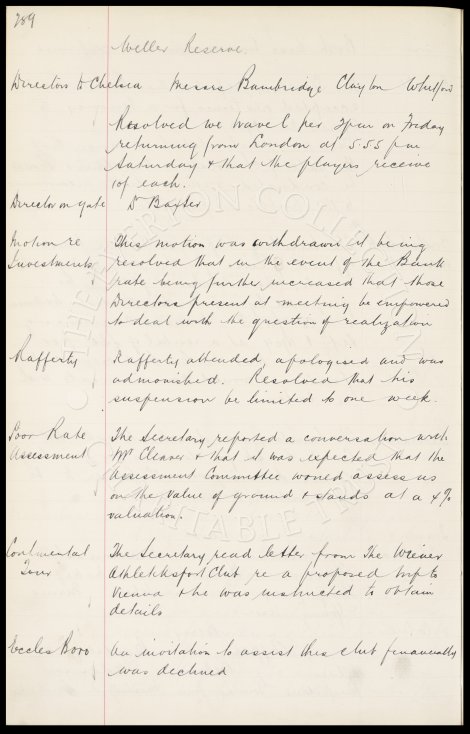 289
Weller Reserve.
Directors to Chelsea Messrs Bainbridge Clayton Whitford
Resolved we travel per 2pm on Friday
returning from London at 5.55 pm
Saturday & that the players receive
10/ each.
Director on gate Dr Baxter
Motion re This motion was withdrawn it being
Investments resolved that in the event of the Bank
rate being further increased that those
Directors present at meeting be empowered
to deal with the question of realization
Rafferty Rafferty attended, apologised and was
admonished. Resolved that his
suspension be limited to one week.
Poor Rate The Secretary reported a conversation with
Assessment Mr Cleaver & that it was expected that the
Assessment Committee would assess us
on the value of ground & stands at a 4%
valuation.
Continental The Secretary read letter from The Wiener
Tour Athletiksport Club re a proposed trip to
Vienna & he was instructed to obtain
details
Eccles Boro An invitation to assist this club financially
was declined
THE EVERTON COLLECTION CHARITABLE TRUST